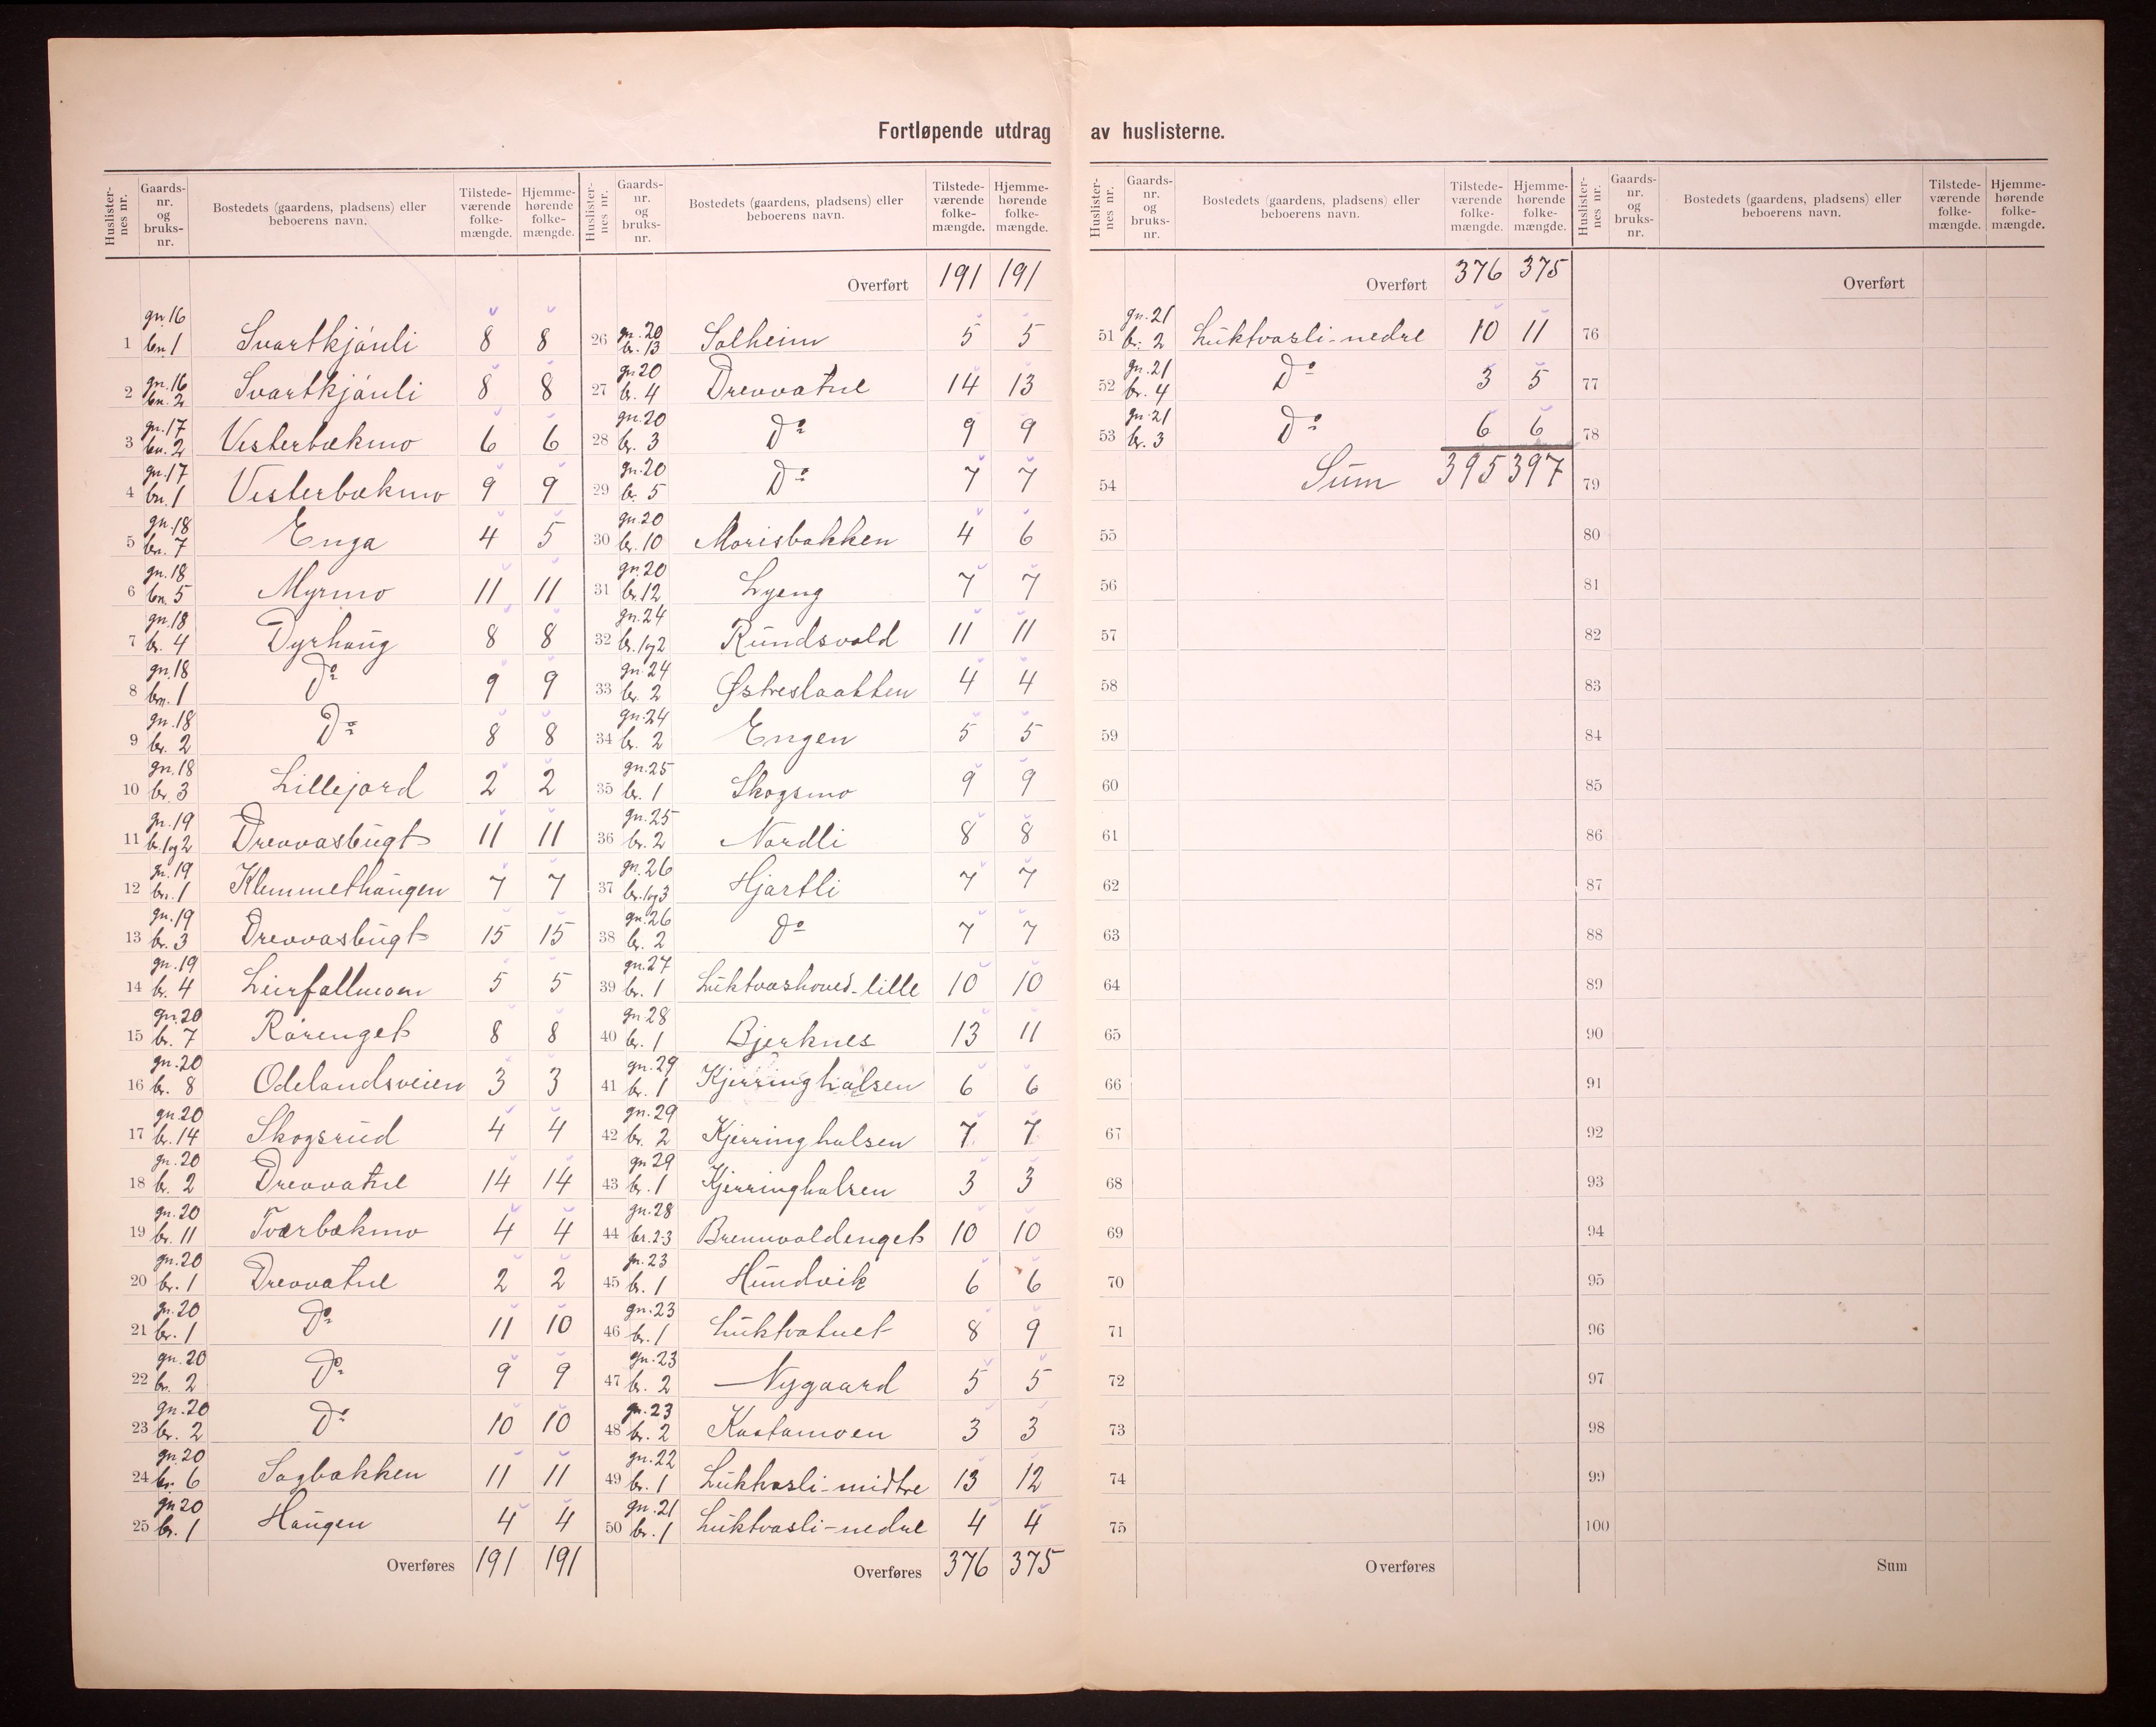 Fortløpende utdrag av huslisterne.
Huslisternes nr. Gaards-nr. og bruks-nr. Bostedets (gaardens, pladsens) eller beboerens navn. Tilstede-værende folke-mængde. Hjemme-hørende folke-mængde.
1 gn. 16 bn. 1 Svartkjønli 8 8
2 gn. 16 bn. 2 Svartkjønli 8 8
3 gn. 17 bn. 2 Vesterbækmo 6 6
4 gn. 17 bn. 1 Vesterbækmo 9 9
5 gn. 18 bn. 7 Enga 4 5
6 gn. 18 bn. 5 Myrmo 11 11
7 gn. 18 br. 4 Dyrhaug 8 8
8 gn. 18 brn. 1 Do 9 9
9 gn. 18 br. 2 Do 8 8
10 gn. 18 br. 3 Lillejord 2 2
11 gn. 19 br. 1og2 Drevvasbugt 11 11
12 gn. 19 brn. 1 Klemmethaugen 7 7
13 gn. 19 br. 3 Drevvasbugt 15 15
14 gn. 19 br. 4 Leirfallmoen 5 5
15 gn. 20 br. 7 Rørenget 8 8
16 gn. 20 br. 8 Odelandsveien 3 3
17 gn. 20 br. 14 Skogsrud 4 4
18 gn. 20 br. 2 Drevvatne 14 14
19 gn. 20 br. 11 Tværbækmo 4 4
20 gn. 20 br. 1 Drevvatne 2 2
21 gn. 20 br. 1 Do 11 10
22 gn. 20 br. 2 Do 9 9
23 gn. 20 br. 2 Do 10 10
24 gn. 20 br. 6 Sagbakken 11 11
25 gn 20 br. 1 Haugen 4 4
Overføres 191 191
Huslisternes nr. Gaards-nr. og bruks-nr. Bostedets (gaardens, pladsens) eller beboerens navn. Tilstede-værende folke-mængde. Hjemme-hørende folke-mængde.
Overført 191 191
26 gn. 20 br. 13 Solheim 5 5
27 gn 20 br. 4 Drevvatne 14 13
28 gn. 20 br. 3 Do 9 9
29 gn. 20 br. 5 Do 7 7
30 gn. 20 br. 10 Morisbakken 4 6
31 gn. 20 br. 12 Lyeng 7 7
32 gn. 24 br. 1og2 Rundsvold 11 11
33 gn. 24 br. 2 Østreslaatten 4 4
34 gn. 24 br. 2 Engen 5 5
35 gn. 25 br. 1 Skogsmo 9 9
36 gn. 25 br. 2 Nordli 8 8
37 gn. 26 br. 1og3 Hjartli 7 7
38 gn. 26 br. 2 Do 7 7
39 gn. 27 br. 1 Luktvashoved-lille 10 10
40 gn. 28 br. 1 Bjerknes 13 11
41 gn. 29 br. 1 Kjerringhalsen 6 6
42 gn. 29 br. 2 Kjerringhalsen 7 7
43 gn 29 br. 1 Kjerringhalsen 3 3
44 gn. 28 br. 2-3 Brennvoldenget 10 10
45 gn. 23 br. 1 Hundvik 6 6
46 gn. 23 br. 1 Luktvatnet 8 9
47 gn. 23 br. 2 Nygaard 5 5
48 gn. 23 br. 2 Kastamoen 3 3
49 gn. 22 br. 1 Luktvasli-midtre 13 12
50 gn. 21 br. 1 Luktvasli-nedre 4 4
Overføres 376 375
Huslisternes nr. Gaards-nr. og bruks-nr. Bostedets (gaardens, pladsens) eller beboerens navn. Tilstede-værende folke-mængde. Hjemme-hørende folke-mængde.
Overført 376 375
51 gn. 21 br. 2 Luktvasli-nedre 10 11
52 gn. 21 br. 4 Do 3 5
53 gn. 21 br. 3 Do 6 6
54 Sum 395 397
55
56
57
58
59
60
61
62
63
64
65
66
67
68
69
70
71
72
73
74
75
Overføres
Huslisternes nr. Gaards-nr. og bruks-nr. Bostedets (gaardens, pladsens) eller beboerens navn. Tilstede-værende folke-mængde. Hjemme-hørende folke-mængde.
Overført
76
77
78
79
80
81
82
83
84
85
86
87
88
89
90
91
92
93
94
95
96
97
98
99
100
Sum